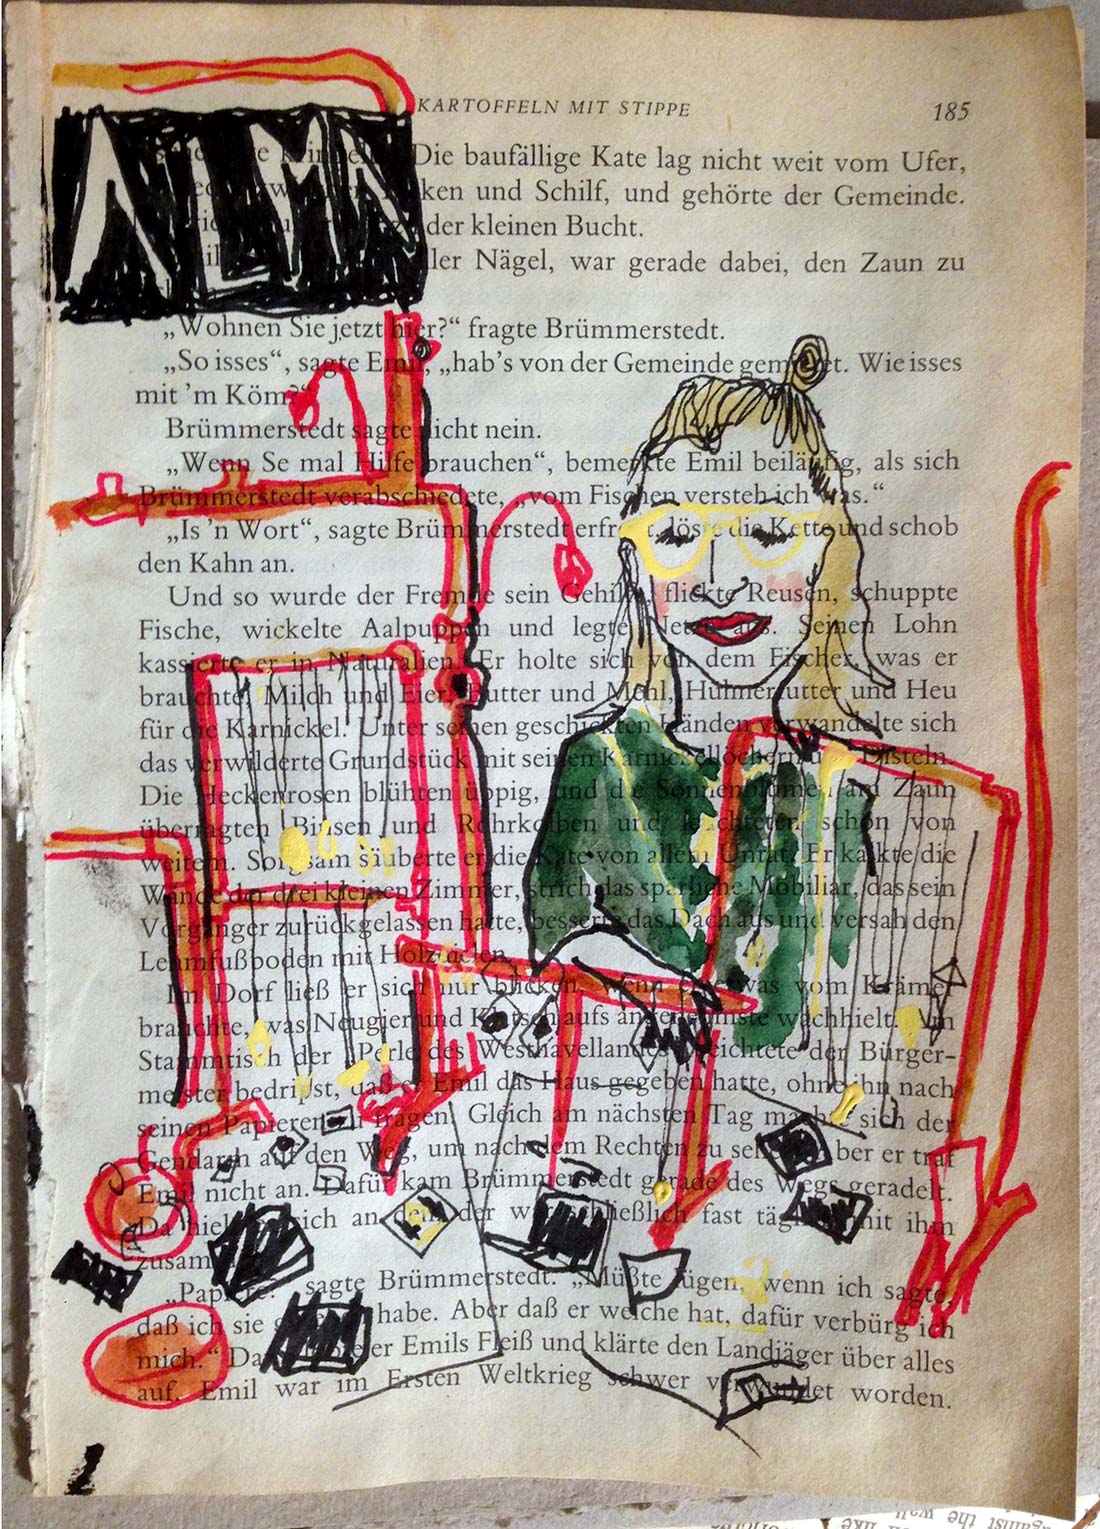 KARTOFFELN MIT STIPPE 185
Die baufällige Kate lag nicht weit vom Ufer,
ken und Schilf, und gehörte der Gemeinde.
der kleinen Bucht.
ller Nägel, war gerade dabei, den Zaun zu
„Wohnen Sie jetzt hier?“ fragte Brümmerstedt.
„So isses“, sagte Emil, „hab's von der Gemeinde gemietet. Wie isses
mit 'm Köm?“
Brümmerstedt sagte nicht nein.
„Wenn Se mal Hilfe brauchen“, bemerkte Emil beiläufig, als sich
Brümmerstedt verabschiedete, „vom Fischen versteh ich was.“
„Is 'n Wort“, sagte Brümmerstedt erfreut, löste die Kette und schob
den Kahn an.
Und so wurde der Fremde sein Gehilfe, flickte Reusen, schuppte
Fische, wickelte Aalpuppen und legte Netze aus. Seinen Lohn
kassierte er in Naturalien. Er holte sich von dem Fischer, was er
brauchte, Milch und Eier, Butter und Mehl, Hühnerfutter und Heu
für die Karnickel. Unter seinen geschickten Händen verwandelte sich
das verwilderte Grundstück mit seinen Karnickellöchern und Disteln.
Die Heckenrosen blühten üppig, und die Sonnenblumen am Zaun
überragten Binsen und Rohrkolben und leuchteten schon von
weitem. Sorgsam säuberte er die Kate von allem Unrat. Er kalkte die
Wände der drei kleinen Zimmer, strich das spärliche Mobiliar, das sein
Vorgänger zurückgelassen hatte, besserte das Dach aus und versah den
Lehmfußboden mit Holzdielen.
Im Dorf ließ er sich nur blicken, wenn er etwas vom Krämer
brauchte, was Neugier und Klatsch aufs angenehmste wachhielt. Am
Stammtisch der „Perle des Westhavellandes“ beichtete der Bürger-
meister bedripst, daß er Emil das Haus gegeben hatte, ohne ihn nach
seinen Papieren zu fragen. Gleich am nächsten Tag machte sich der
Gendarm auf den Weg, um nach dem Rechten zu sehen, aber er traf
Emil nicht an. Dafür kam Brümmerstedt gerade des Wegs geradelt.
Da hielt sich an den, der schließlich fast täglich mit ihm
zusam
„Papiere?“ sagte Brümmerstedt. „Müßte lügen, wenn ich sagte,
daß ich sie habe. Aber daß er welche hat, dafür verbürg ich
mich.“ Da er Emils Fleiß und klärte den Landjäger über alles
auf. Emil war im Ersten Weltkrieg schwer verwundet worden.
against the wall
like